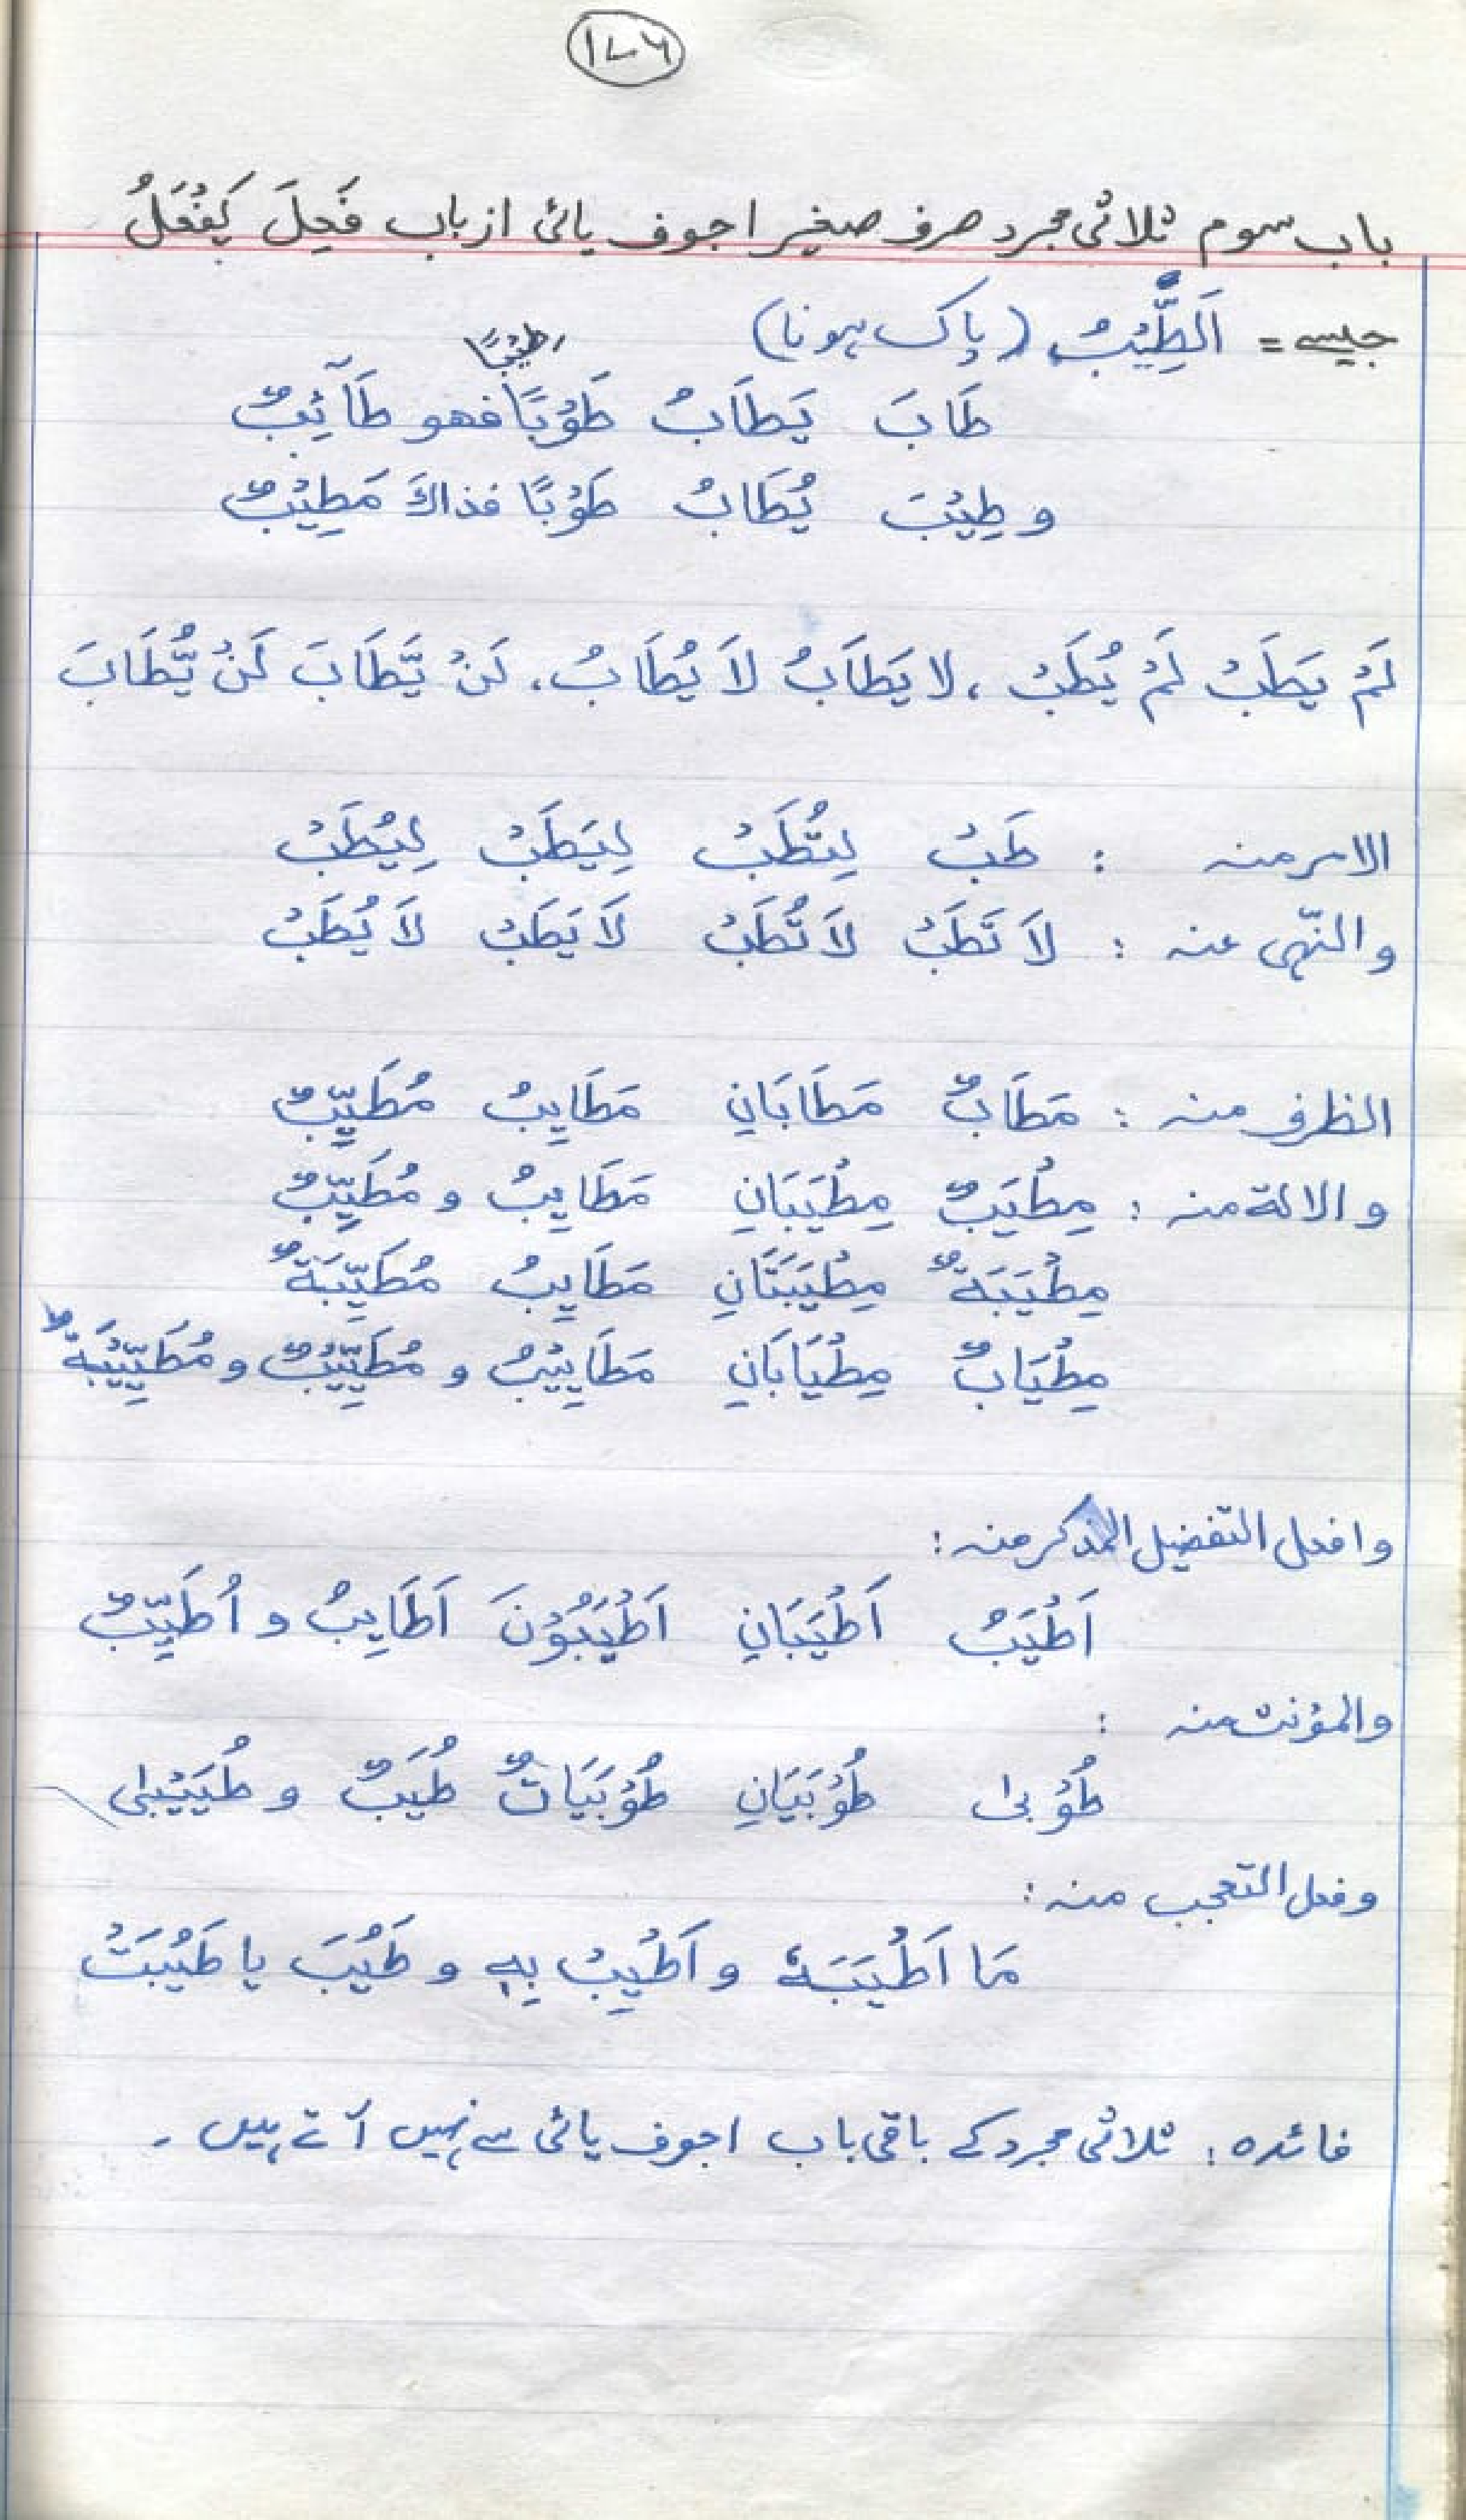 ۱۷۶
باب سوم ثلاثی مجرد صرف صغیر اجوف یائی از باب فَعِلَ یَفْعَلُ
جیسے = اَلطِّیْبُ (پاک ہونا)
طِیْبًا
طَابَ یَطَابُ طَوْبًا فهو طَآئِبٌ
و طِیْبَ یُطَابُ طَوْبًا فذاكَ مَطِیْبٌ
لَمْ یَطَبْ لَمْ یُطَبْ ، لا یَطَابُ لَا یُطَابُ ، لَنْ یَّطَابَ لَنْ یُّطَابَ
الامر منه : طَبْ لِتُطَبْ لِیَطَبْ لِیُطَبْ
والنّهی عنه : لَا تَطَبْ لَا تُطَبْ لَا یَطَبْ لَا یُطَبْ
الظرف منه : مَطَابٌ مَطَابَانِ مَطَایِبُ مُطَیِّبٌ
و الالة منه : مِطْیَبٌ مِطْیَبَانِ مَطَایِبُ و مُطَیِّبٌ
مِطْیَبَةٌ مِطْیَبَتَانِ مَطَایِبُ مُطَیِّبَةٌ
مِطْیَابٌ مِطْیَابَانِ مَطَایِیْبُ و مُطَیِّیْبٌ و مُطَیِّیْبَةٌ
وافعل التفضیل المذکر منه :
اَطْیَبُ اَطْیَبَانِ اَطْیَبُوْنَ اَطَایِبُ و اُطَیِّبٌ
والمؤنث منه :
طُوْبىٰ طُوْبَیَانِ طُوْبَیَاتٌ طُیَبٌ و طُیَیْبىٰ
وفعل التعجب منه :
مَا اَطْیَبَهٗ و اَطْیِبْ بِهٖ و طَیُبَ یا طَیُبَتْ
فائدہ : ثلاثی مجرد کے باقی باب اجوف یائی سے نہیں آتے ہیں ۔